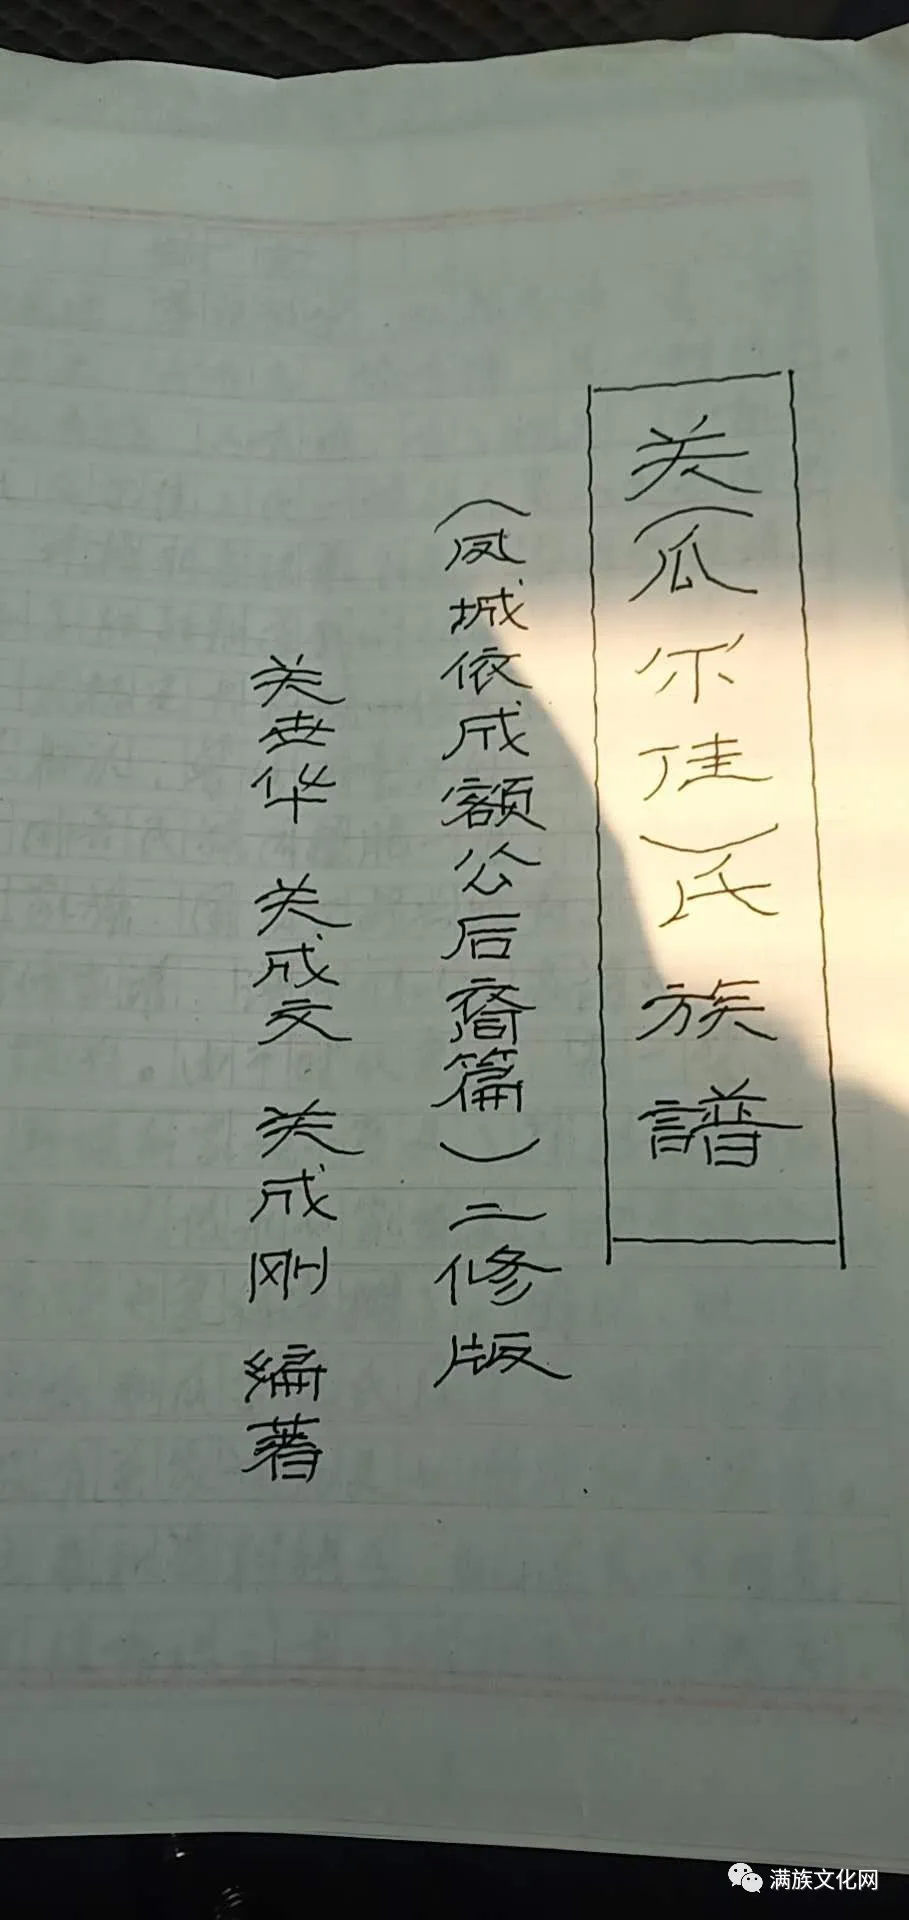 关(瓜尔佳)氏族譜
(凤城依成额公后裔篇)二修版
关世华 关成文 关成刚 编著
满族文化网